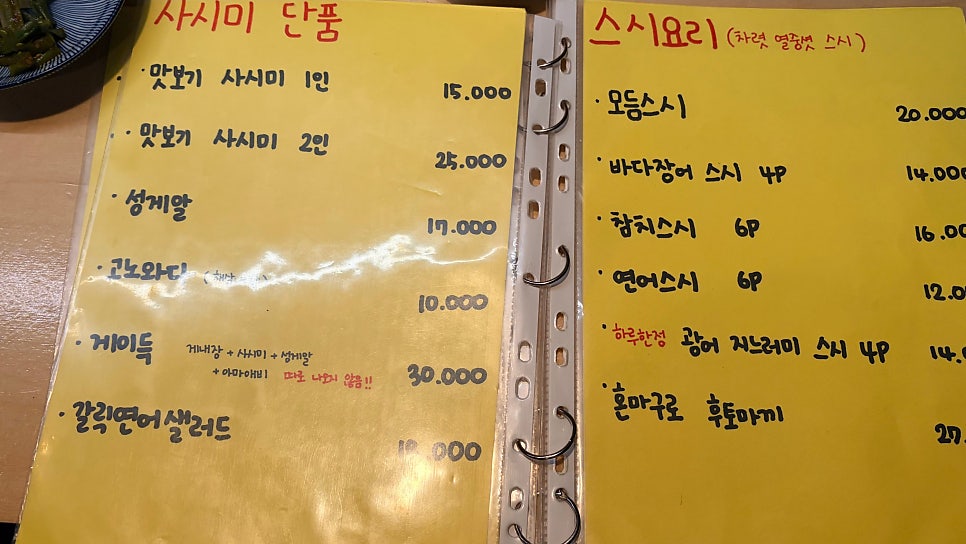 사시미 단품
· 맛보기 사시미 1인 15.000
· 맛보기 사시미 2인 25.000
· 성게알 17.000
· 고노와다 10.000
· 게이득 게내장 + 사시미 + 성게알 30.000
+ 아마애비 따로 나오지 않음!!
· 갈릭연어샐러드 000
스시요리 (차렷 열중쉿 스시)
· 모듬스시 20.000
· 바다장어 스시 4P 14.000
· 참치스시 6P 16.00
· 연어스시 6P 12.0
· 하루한정 광어 지느러미 스시 4P 14.
· 혼마구로 후토마끼 27.